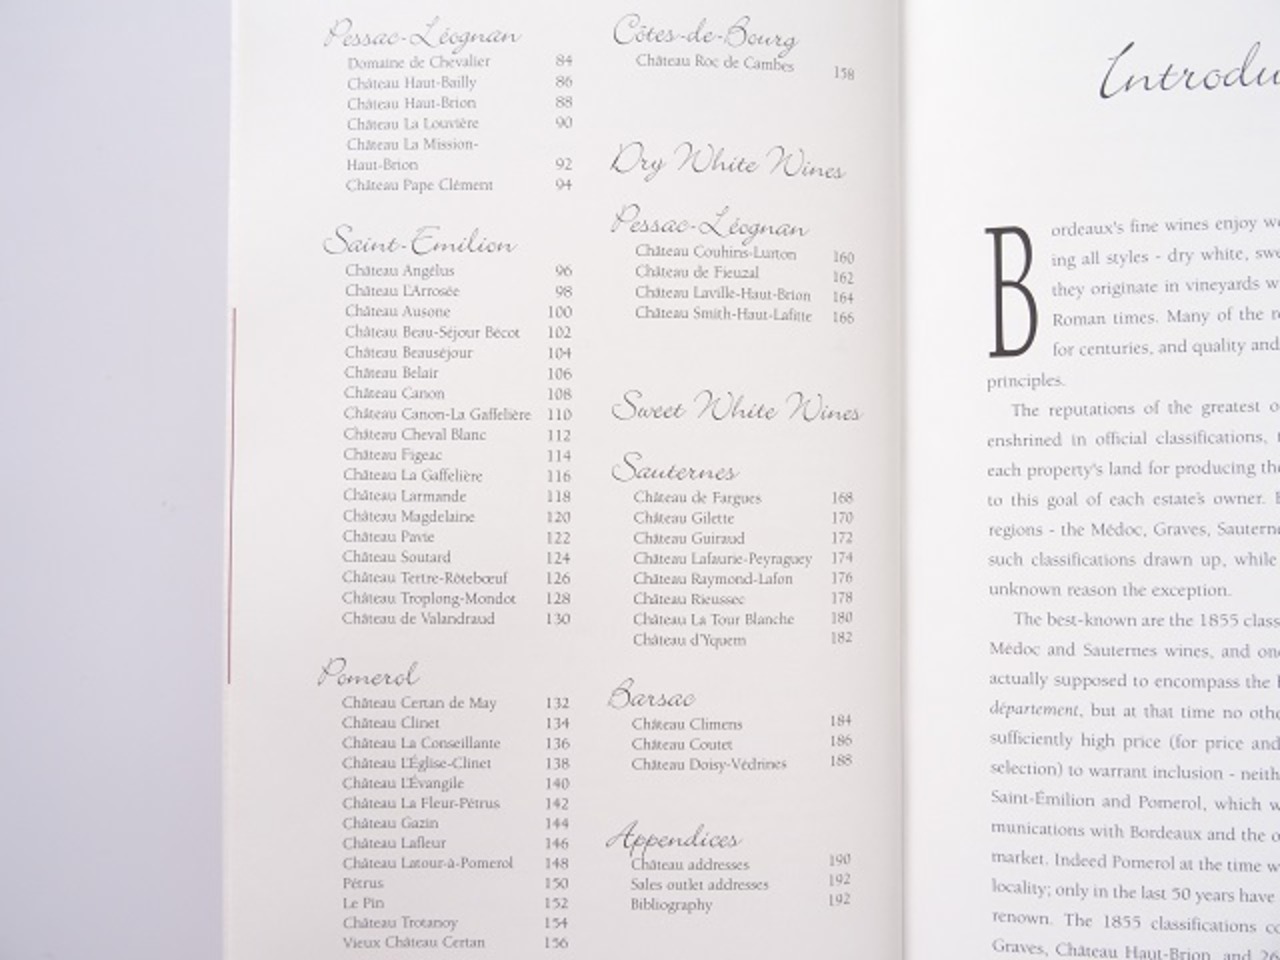 Pessac-Léognan
Domaine de Chevalier 84
Château Haut-Bailly 86
Château Haut-Brion 88
Château La Louvière 90
Château La Mission-
Haut-Brion 92
Château Pape Clément 94
Saint-Emilion
Château Angélus 96
Château L'Arrosée 98
Château Ausone 100
Château Beau-Séjour Bécot 102
Château Beauséjour 104
Château Belair 106
Château Canon 108
Château Canon-La Gaffelière 110
Château Cheval Blanc 112
Château Figeac 114
Château La Gaffelière 116
Château Larmande 118
Château Magdelaine 120
Château Pavie 122
Château Soutard 124
Château Tertre-Rôtebœuf 126
Château Troplong-Mondot 128
Château de Valandraud 130
Pomerol
Château Certan de May 132
Château Clinet 134
Château La Conseillante 136
Château L'Église-Clinet 138
Château L'Évangile 140
Château La Fleur-Pétrus 142
Château Gazin 144
Château Lafleur 146
Château Latour-à-Pomerol 148
Pétrus 150
Le Pin 152
Château Trotanoy 154
Vieux Château Certan 156
Côtes-de-Bourg
Château Roc de Cambes 158
Dry White Wines
Pessac-Léognan
Château Couhins-Lurton 160
Château de Fieuzal 162
Château Laville-Haut-Brion 164
Château Smith-Haut-Lafitte 166
Sweet White Wines
Sauternes
Château de Fargues 168
Château Gilette 170
Château Guiraud 172
Château Lafaurie-Peyraguey 174
Château Raymond-Lafon 176
Château Rieussec 178
Château La Tour Blanche 180
Château d'Yquem 182
Barsac
Château Climens 184
Château Coutet 186
Château Doisy-Védrines 188
Appendices
Château addresses 190
Sales outlet addresses 192
Bibliography 192
Introdu
Bordeaux's fine wines enjoy
ing all styles - dry white,
they originate in vineyards
Roman times. Many of the
for centuries, and quality and
principles.
The reputations of the greatest
enshrined in official classifications,
each property's land for producing the
to this goal of each estate's owner.
regions - the Médoc, Graves,
such classifications drawn up, while
unknown reason the exception.
The best-known are the 1855
Médoc and Sauternes wines, and
actually supposed to encompass the
département, but at that time no
sufficiently high price (for price and
selection) to warrant inclusion -
Saint-Émilion and Pomerol, which
munications with Bordeaux and the
market. Indeed Pomerol at the time
locality; only in the last 50 years have
renown. The 1855 classifications
Graves, Château Haut-Brion, and 26